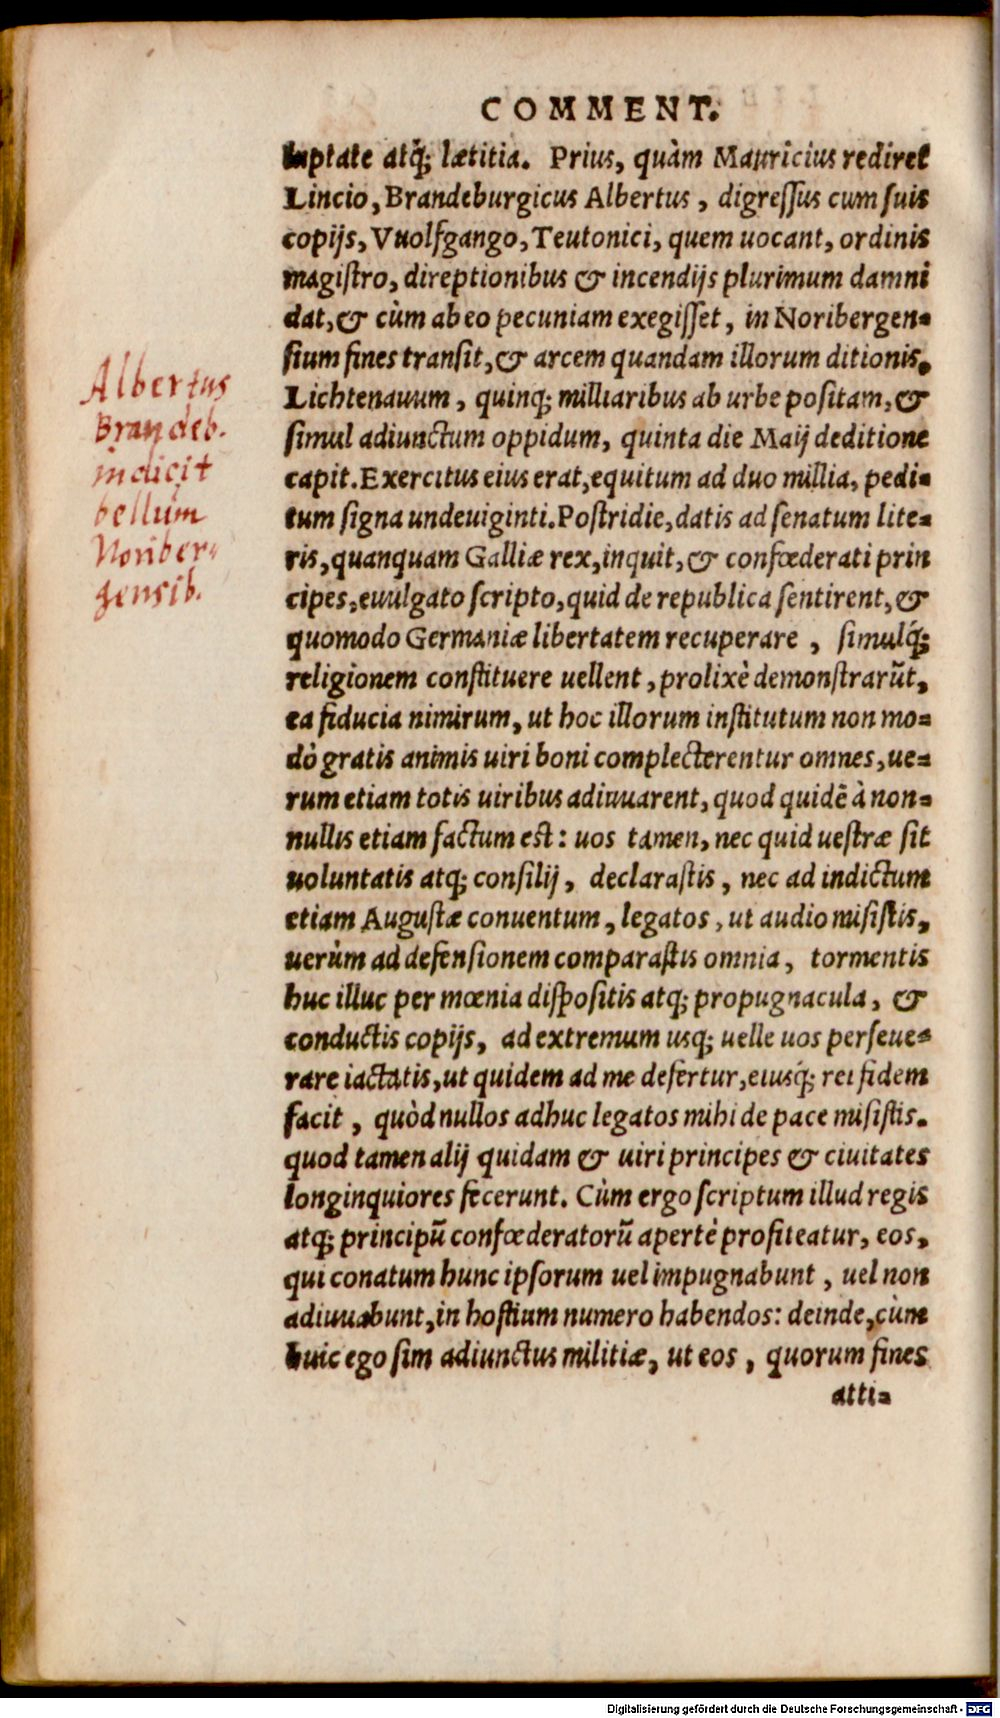 COMMENT.
luptate atq́; lætitia. Prius, quàm Mauricius rediret
Lincio, Brandeburgicus Albertus, digressus cum suis
copijs, Vuolfgango, Teutonici, quem uocant, ordinis
magistro, direptionibus & incendijs plurimum damni
dat, & cùm ab eo pecuniam exegisset, in Noribergen-
sium fines transit, & arcem quandam illorum ditionis,
Lichtenauum, quinq; milliaribus ab urbe positam, &
simul adiunctum oppidum, quinta die Maij deditione
capit. Exercitus eius erat, equitum ad duo millia, pedi-
tum signa undeuiginti. Postridie, datis ad senatum lite-
ris, quanquam Galliæ rex, inquit, & confœderati prin
cipes, euulgato scripto, quid de republica sentirent, &
quomodo Germaniæ libertatem recuperare, simulq́;
religionem constituere uellent, prolixè demonstrarūt,
ea fiducia nimirum, ut hoc illorum institutum non mo-
dò gratis animis uiri boni complecterentur omnes, ue-
rum etiam totis uiribus adiuuarent, quod quidē à non-
nullis etiam factum est: uos tamen, nec quid uestræ sit
uoluntatis atq; consilij, declarastis, nec ad indictum
etiam Augustæ conuentum, legatos, ut audio misistis,
uerùm ad defensionem comparastis omnia, tormentis
huc illuc per mœnia dispositis atq; propugnacula, &
conductis copijs, ad extremum usq; uelle uos perseue-
rare iactatis, ut quidem ad me defertur, eiusq́; rei fidem
facit, quòd nullos adhuc legatos mihi de pace misistis.
quod tamen alij quidam & uiri principes & ciuitates
longinquiores fecerunt. Cùm ergo scriptum illud regis
atq; principū confœderatorū apertè profiteatur, eos,
qui conatum hunc ipsorum uel impugnabunt, uel non
adiuuabunt, in hostium numero habendos: deinde, cùm
huic ego sim adiunctus militiæ, ut eos, quorum fines
atti-
Albertus
Brandeb.
indicit
bellum
Noriber-
gensib.
Digitalisierung gefördert durch die Deutsche Forschungsgemeinschaft - DFG